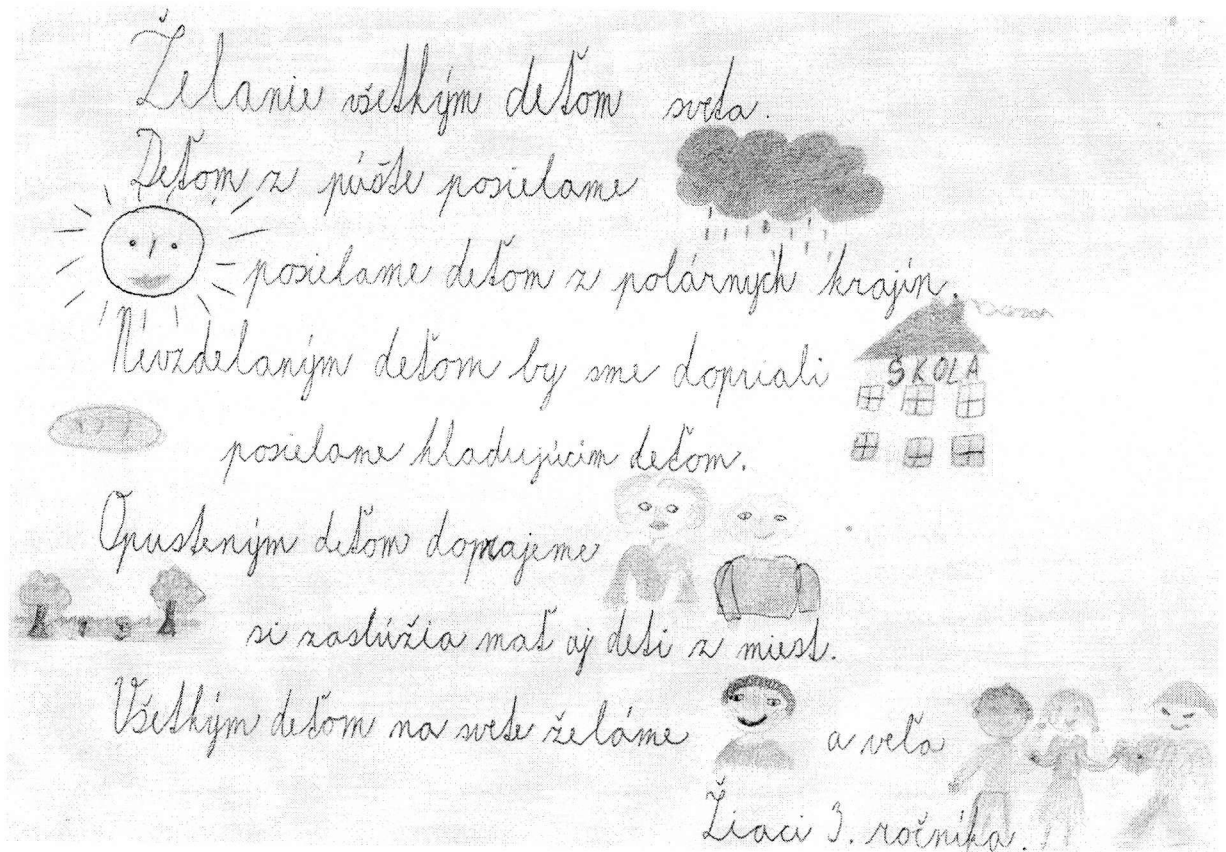 Želanie všetkým deťom sveta.
Deťom z púšte posielame
posielame deťom z polárnych krajín.
Nevzdelaným deťom by sme dopriali
ŠKOLA
posielame hladujúcim deťom.
Opusteným deťom doprajeme
si zaslúžia mať aj deti z miest.
Všetkým deťom na svete želáme
a veľa
Žiaci 3. ročníka.